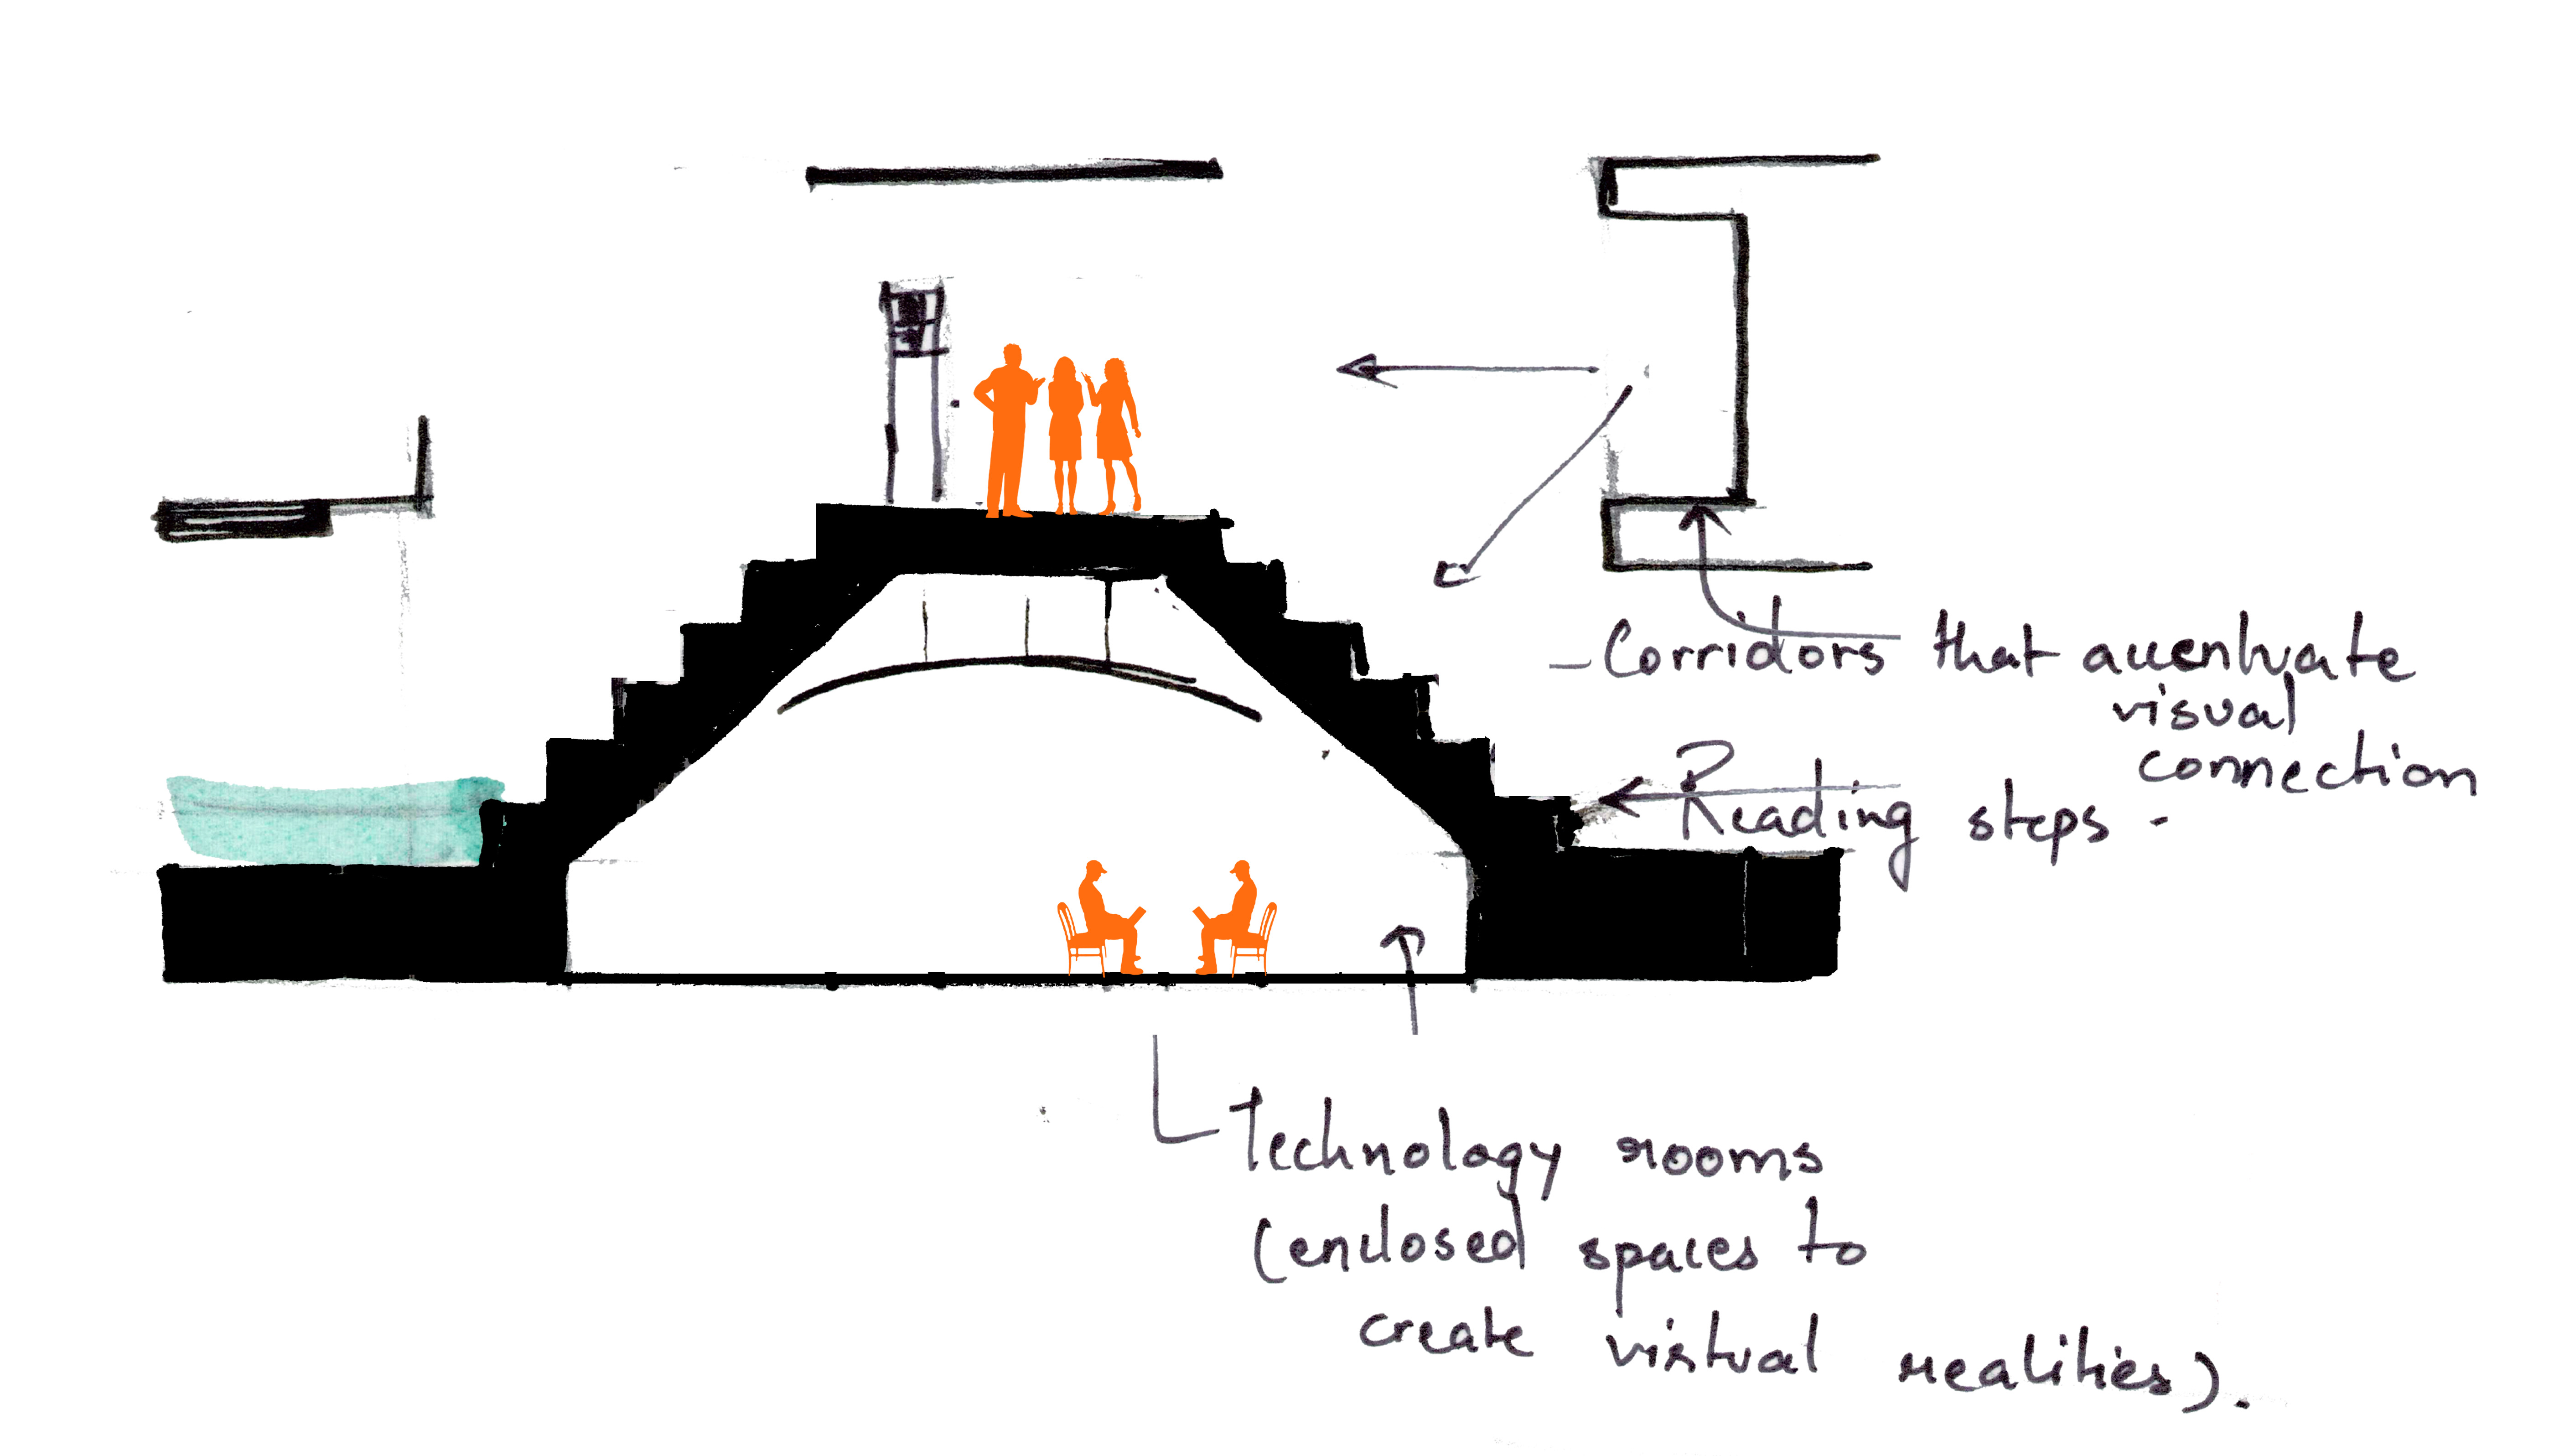 - Corridors that accentuate
visual
connection
Reading steps -
Technology rooms
(enclosed spaces to
create virtual realities).